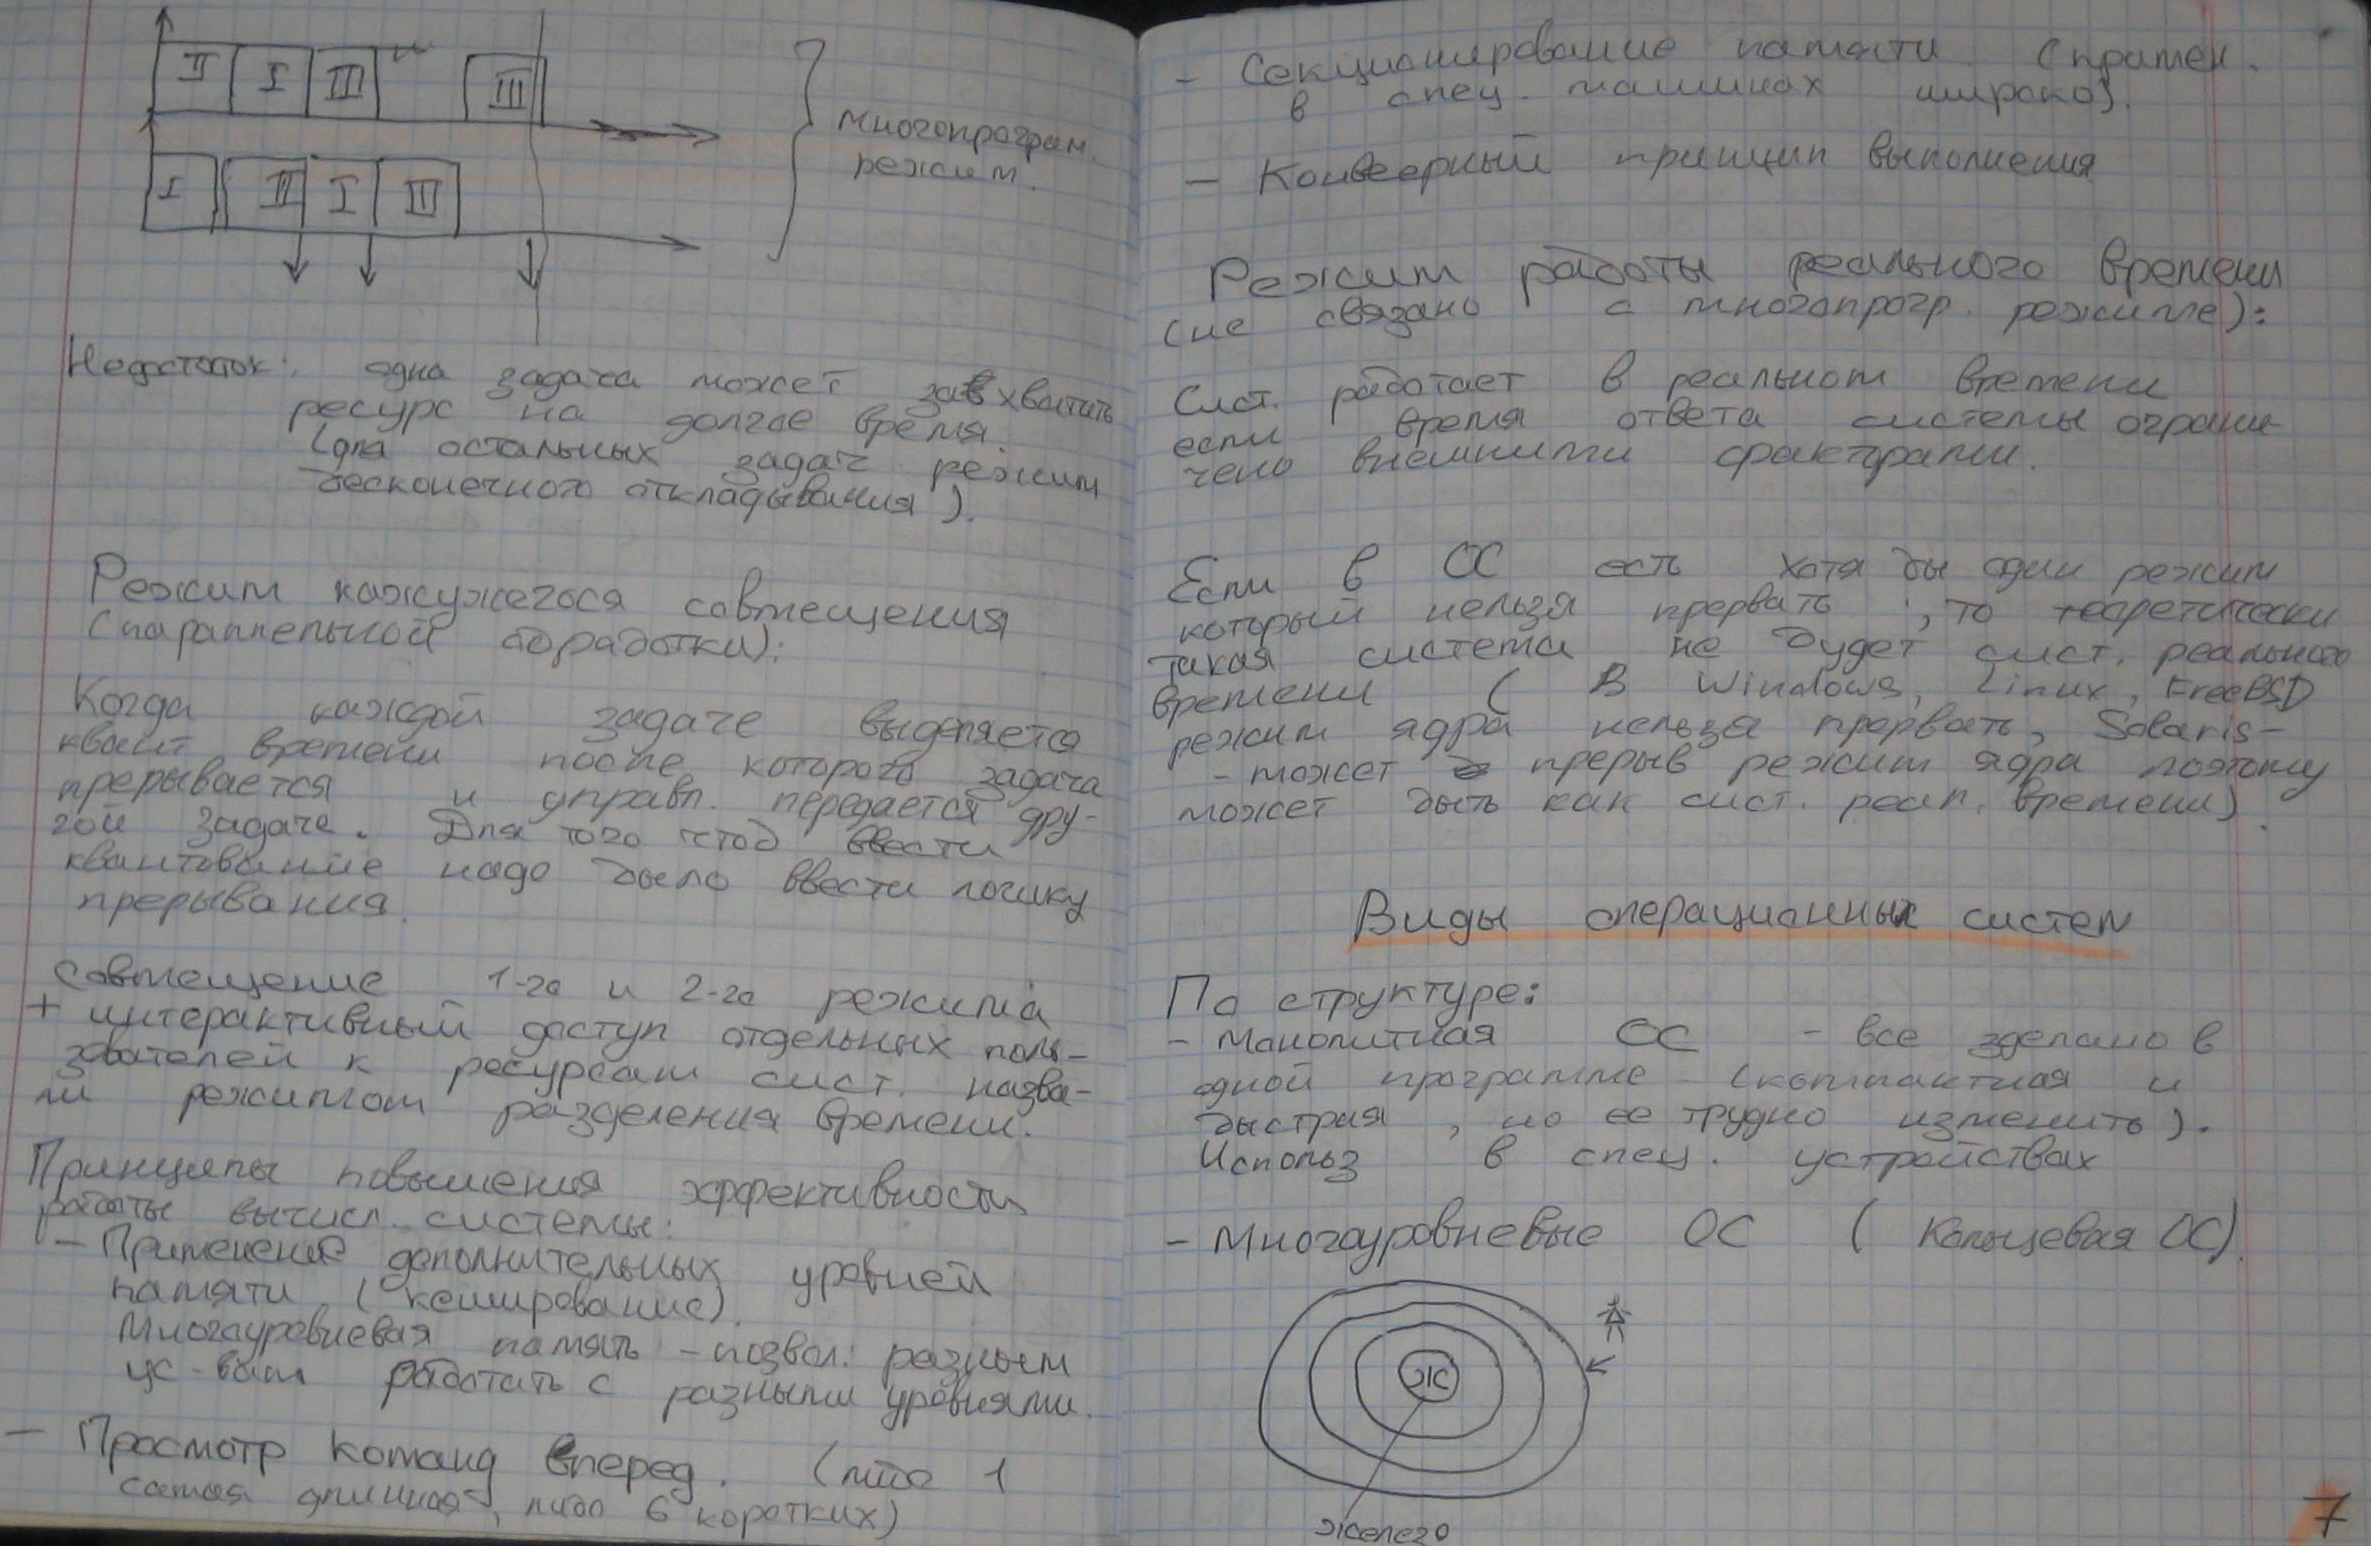 II I III III
I II I III
многопрограм.
режим.
Недостаток: одна задача может захватить
ресурс на долгое время.
(для остальных задач режим
бесконечного откладывания).
Режим кажужегося совмещения
(параллельной обработки):
Когда каждой задаче выделяется
квант времени после которого задача
прерывается и управл. передается дру-
гой задаче. Для того чтоб ввести
квантование надо было ввести логику
прерывания.
Совмещение 1-го и 2-го режима
+ интерактивный доступ отдельных поль-
зователей к ресурсам сист. назва-
ли режимом разделения времени.
Принципы повышения эффективности
работы вычисл. системы:
- Применение дополнительных уровней
памяти (кеширование).
Многоуровневая память - позвол. разным
ус-вам работать с разными уровнями.
- Просмотр команд вперед. (либо 1
самая длинная, либо 6 коротких)
- Секционирование памяти (примен.
в спец. машинах широко).
- Конвеерный принцип выполнения
Режим работы реального времени
(не связано с многопрогр. режиме):
Сист. работает в реальном времени
если время ответа системы ограни-
чено внешними факторами.
Если в ОС есть хотя бы один режим
который нельзя прервать, то теоретически
такая система не будет сист. реального
времени ( В Windows, Linux, FreeBSD
режим ядра нельзя прервать, Solaris-
- может прерыв режим ядра поэтому
может быть как сист. реал. времени).
Виды операционных систем
По структуре:
- Манолитная ОС - все зделано в
одной программе (компактная и
быстрая, но ее трудно изменить).
Использ в спец. устройствах
- Многоуровневые ОС (Кольцевая ОС).
Ж
железо
7